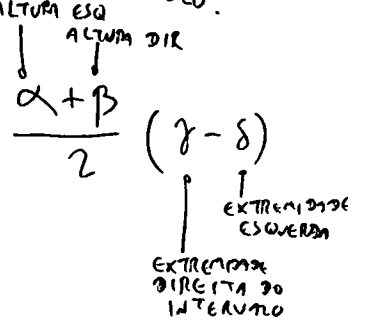 ALTURA ESQ
ALTURA DIR
α + β
2
(γ - δ)
EXTREMIDADE
ESQUERDA
EXTREMIDADE
DIREITA DO
INTERVALO